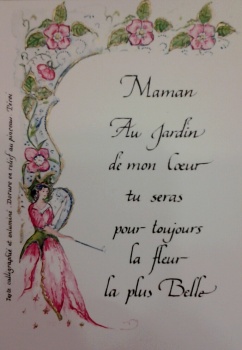 Maman
Au Jardin
de mon Cœur
tu seras
pour toujours
la fleur
la plus Belle
Texte calligraphié et enluminé. Dorure en relief au pinceau